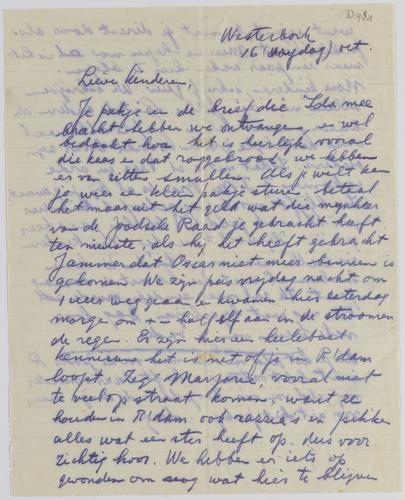 D984
Westerbork
16 (vrijdag) oct.
Lieve kinderen,
Je pakje en de brief die Ida mee
bracht hebben we ontvangen en wel
bedankt hoor. het is heerlijk vooral
die kaas en dat roggebrood, we hebben
er van zitten smullen. Als je wilt kan
je weer een klein pakje sturen, betaal
het maar uit het geld wat die mijnheer
van de Joodsche Raad je gebracht heeft
ten minste, als hij het heeft gebracht
Jammer dat Oscar niet meer binnen is
gekomen. We zijn pas vrijdag nacht om
1 uur weggegaan en kwamen hier zaterdag
morge om +- half elf aan in de stroomen
de regen. Er zijn hier een heeleboel
kennissen het is net of je in R'dam
loopt. Zeg Marjorie vooral niet
te veel op straat komen, want ze
houden in R'dam ook razzia's en pikken
alles wat een ster heeft op. dus voor
zichtig hoor. We hebben er iets op
gevonden om hier te blijven